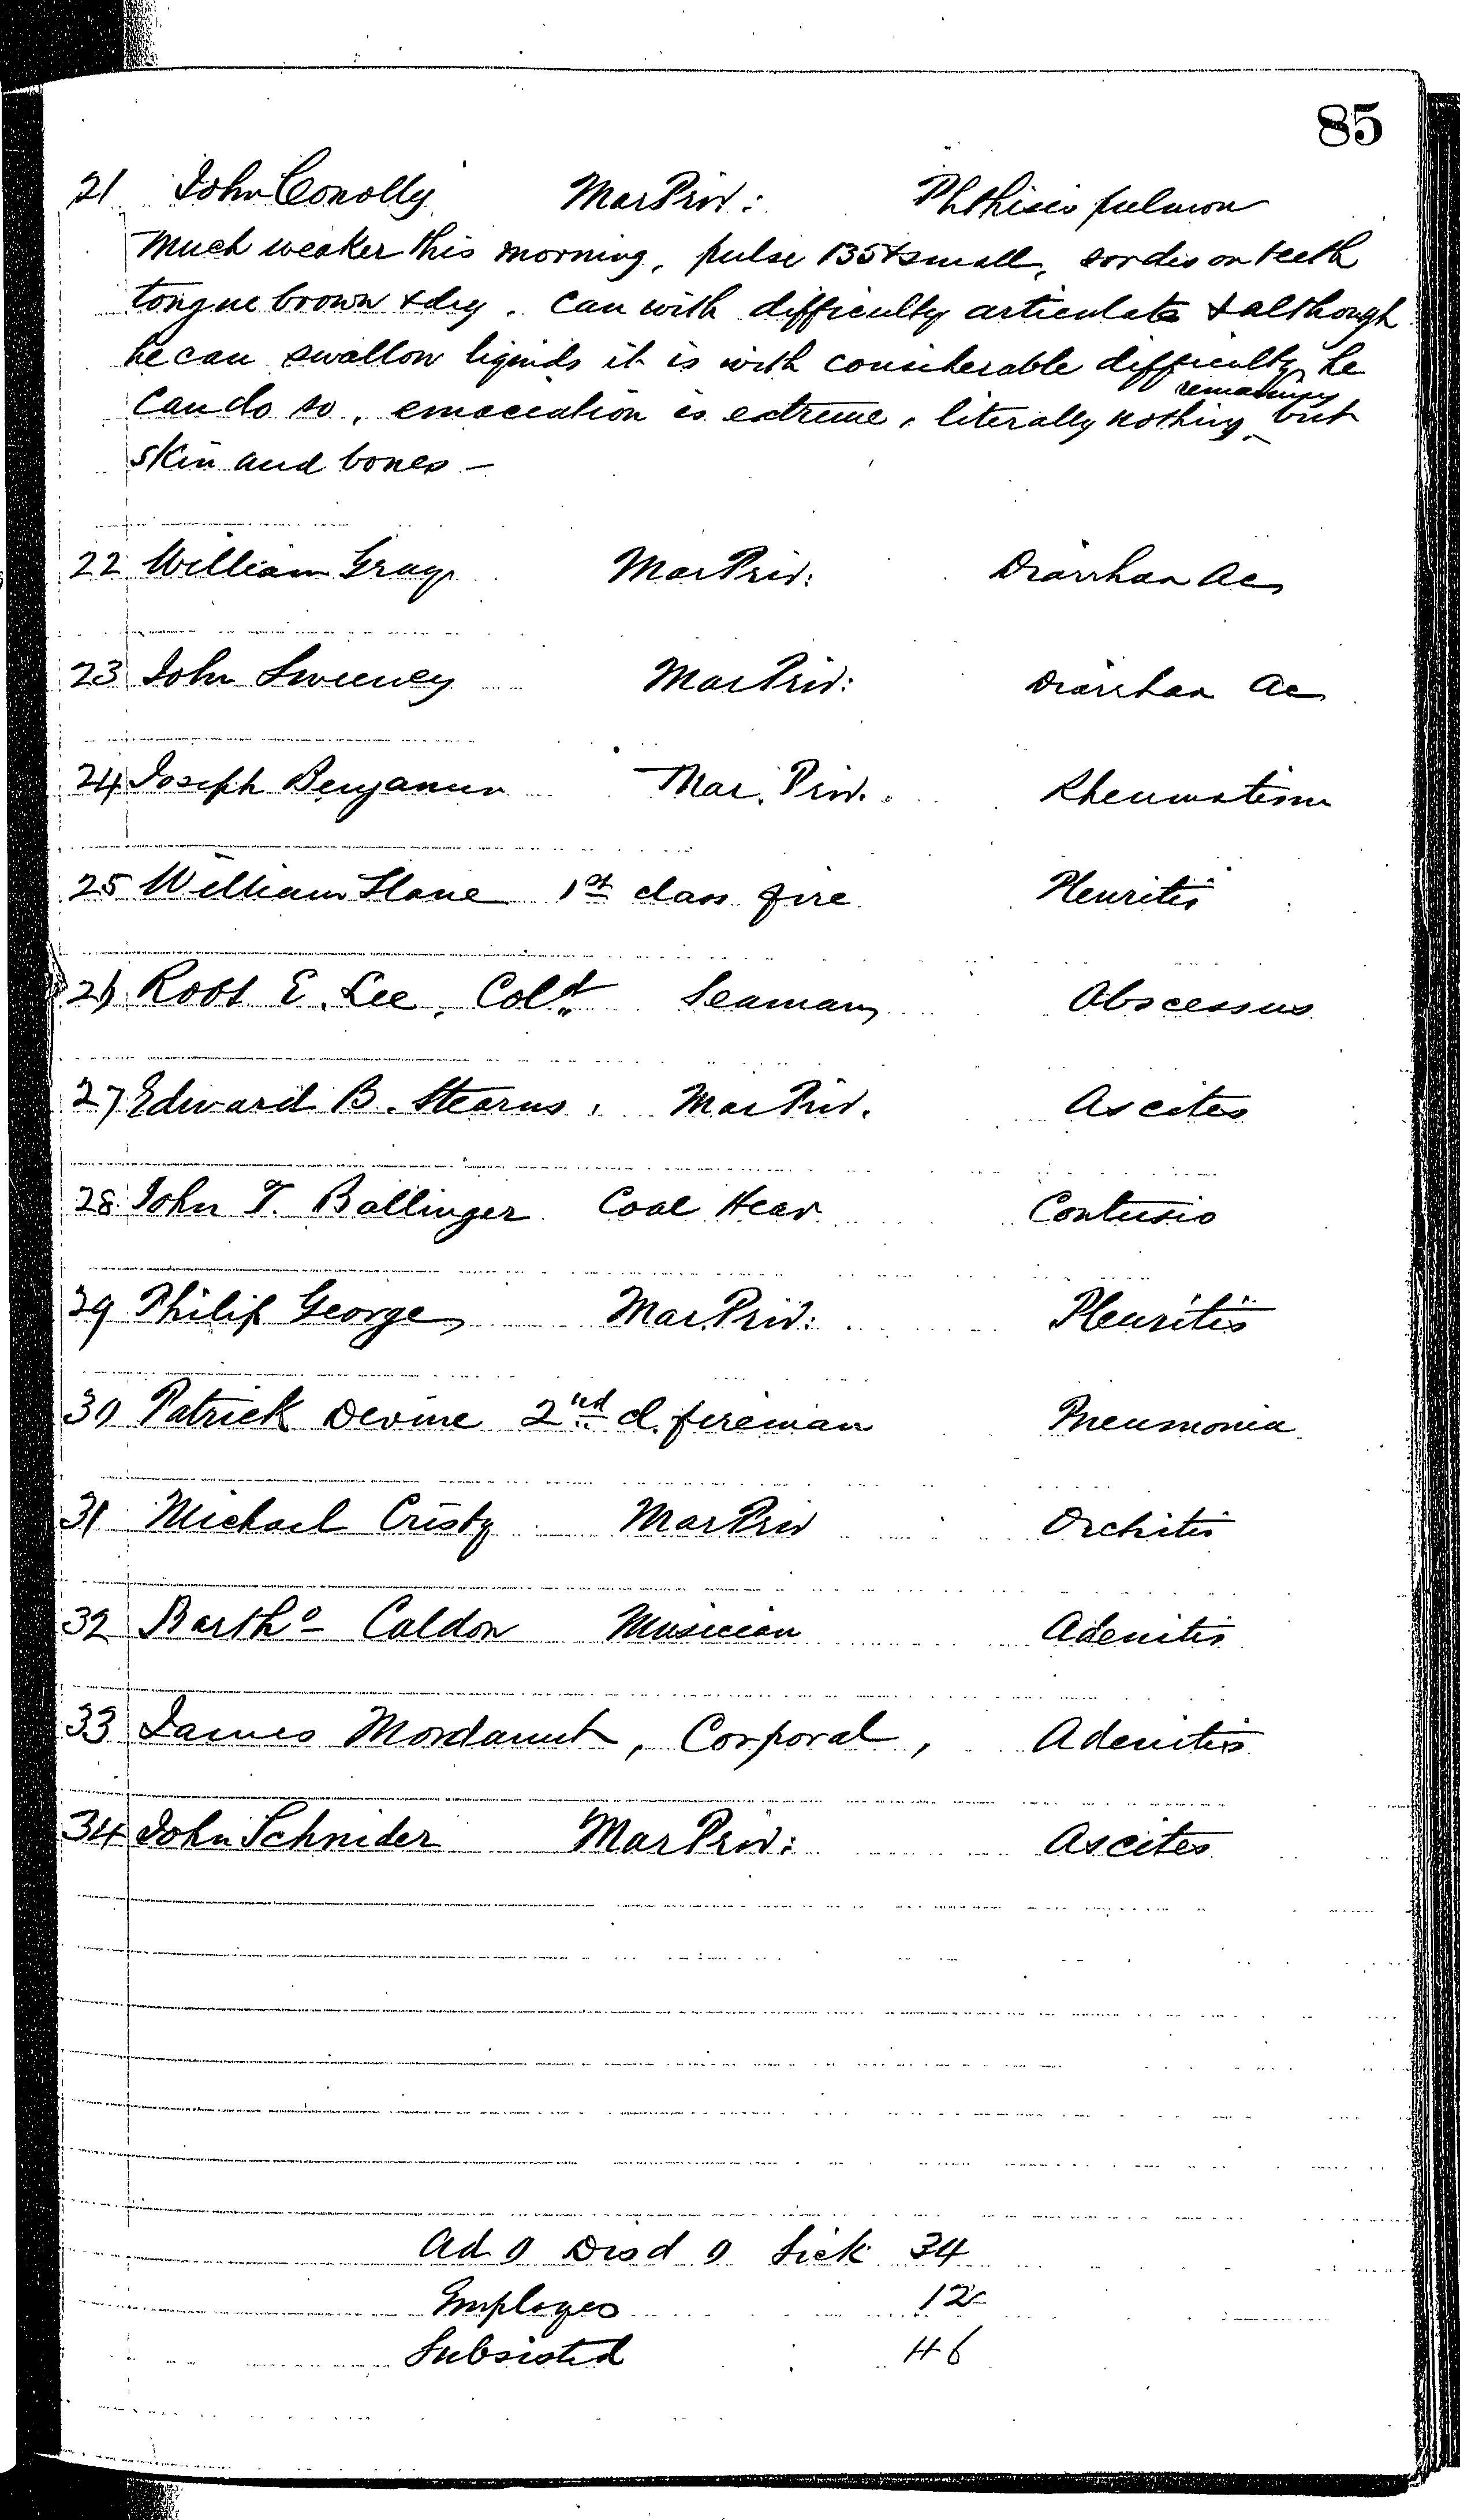 85
21 John Conolly Mar Priv: Phthisis pulmon
Much weaker this morning, pulse 135 & small, sordes on teeth
tongue brown & dry. Can with difficulty articulate & although
he can swallow liquids it is with considerable difficulty he
remaining
can do so, emaciation is extreme, literally nothing but
skin and bones —
22 William Gray Mar Priv: Diarrhœa Ac
23 John Sweeney Mar Priv: Diarrhœa Ac
24 Joseph Benjamin Mar. Priv. Rheumatism
25 William Slane 1st class fire Pleuritis
26 Robt E. Lee, Cold Seaman Abscessus
27 Edward B. Stearns, Mar Priv. Ascites
28 John T. Ballinger Coal Heav Contusio
29 Philip George Mar Priv: Pleuritis
30 Patrick Devine 2nd cl. fireman Pneumonia
31 Michael Cristy Mar Priv Orchitis
32 Bartho Caldon Musician Adenitis
33 James Mordaunt, Corporal, Adenitis
34 John Schnider Mar Priv: Ascites
Ad 0 Disd 0 Sick 34
Employes 12
Subsisted 46